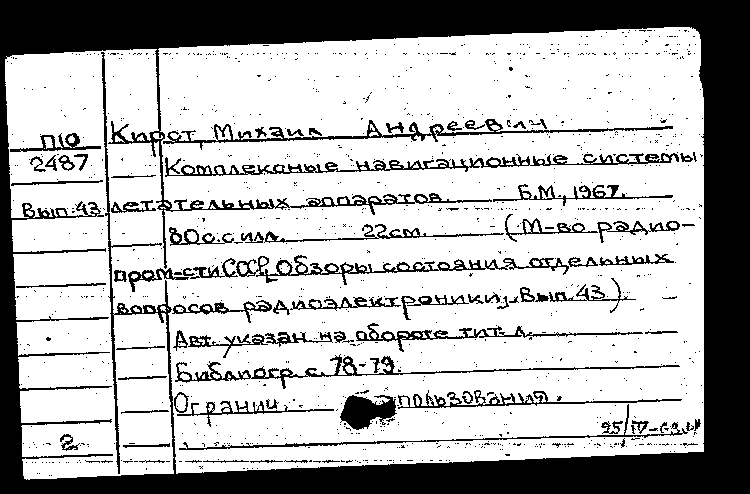 Кирот, Михаил Андреевич
П10
2487 Комплексные навигационные системы
Вып. 43 летательных аппаратов. Б.М., 1967.
80 с. с илл. 22 см. (М-во радио-
пром-сти СССР. Обзоры состояния отдельных
вопросов радиоэлектроники, Вып. 43).
Авт. указан на обороте тит. л.
Библиогр. с. 78-79.
Огранич. пользования.
2